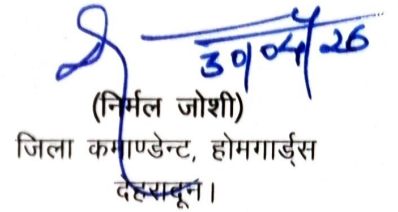 30/04/26
(निर्मल जोशी)
जिला कमाण्डेन्ट, होमगार्ड्स
देहरादून।